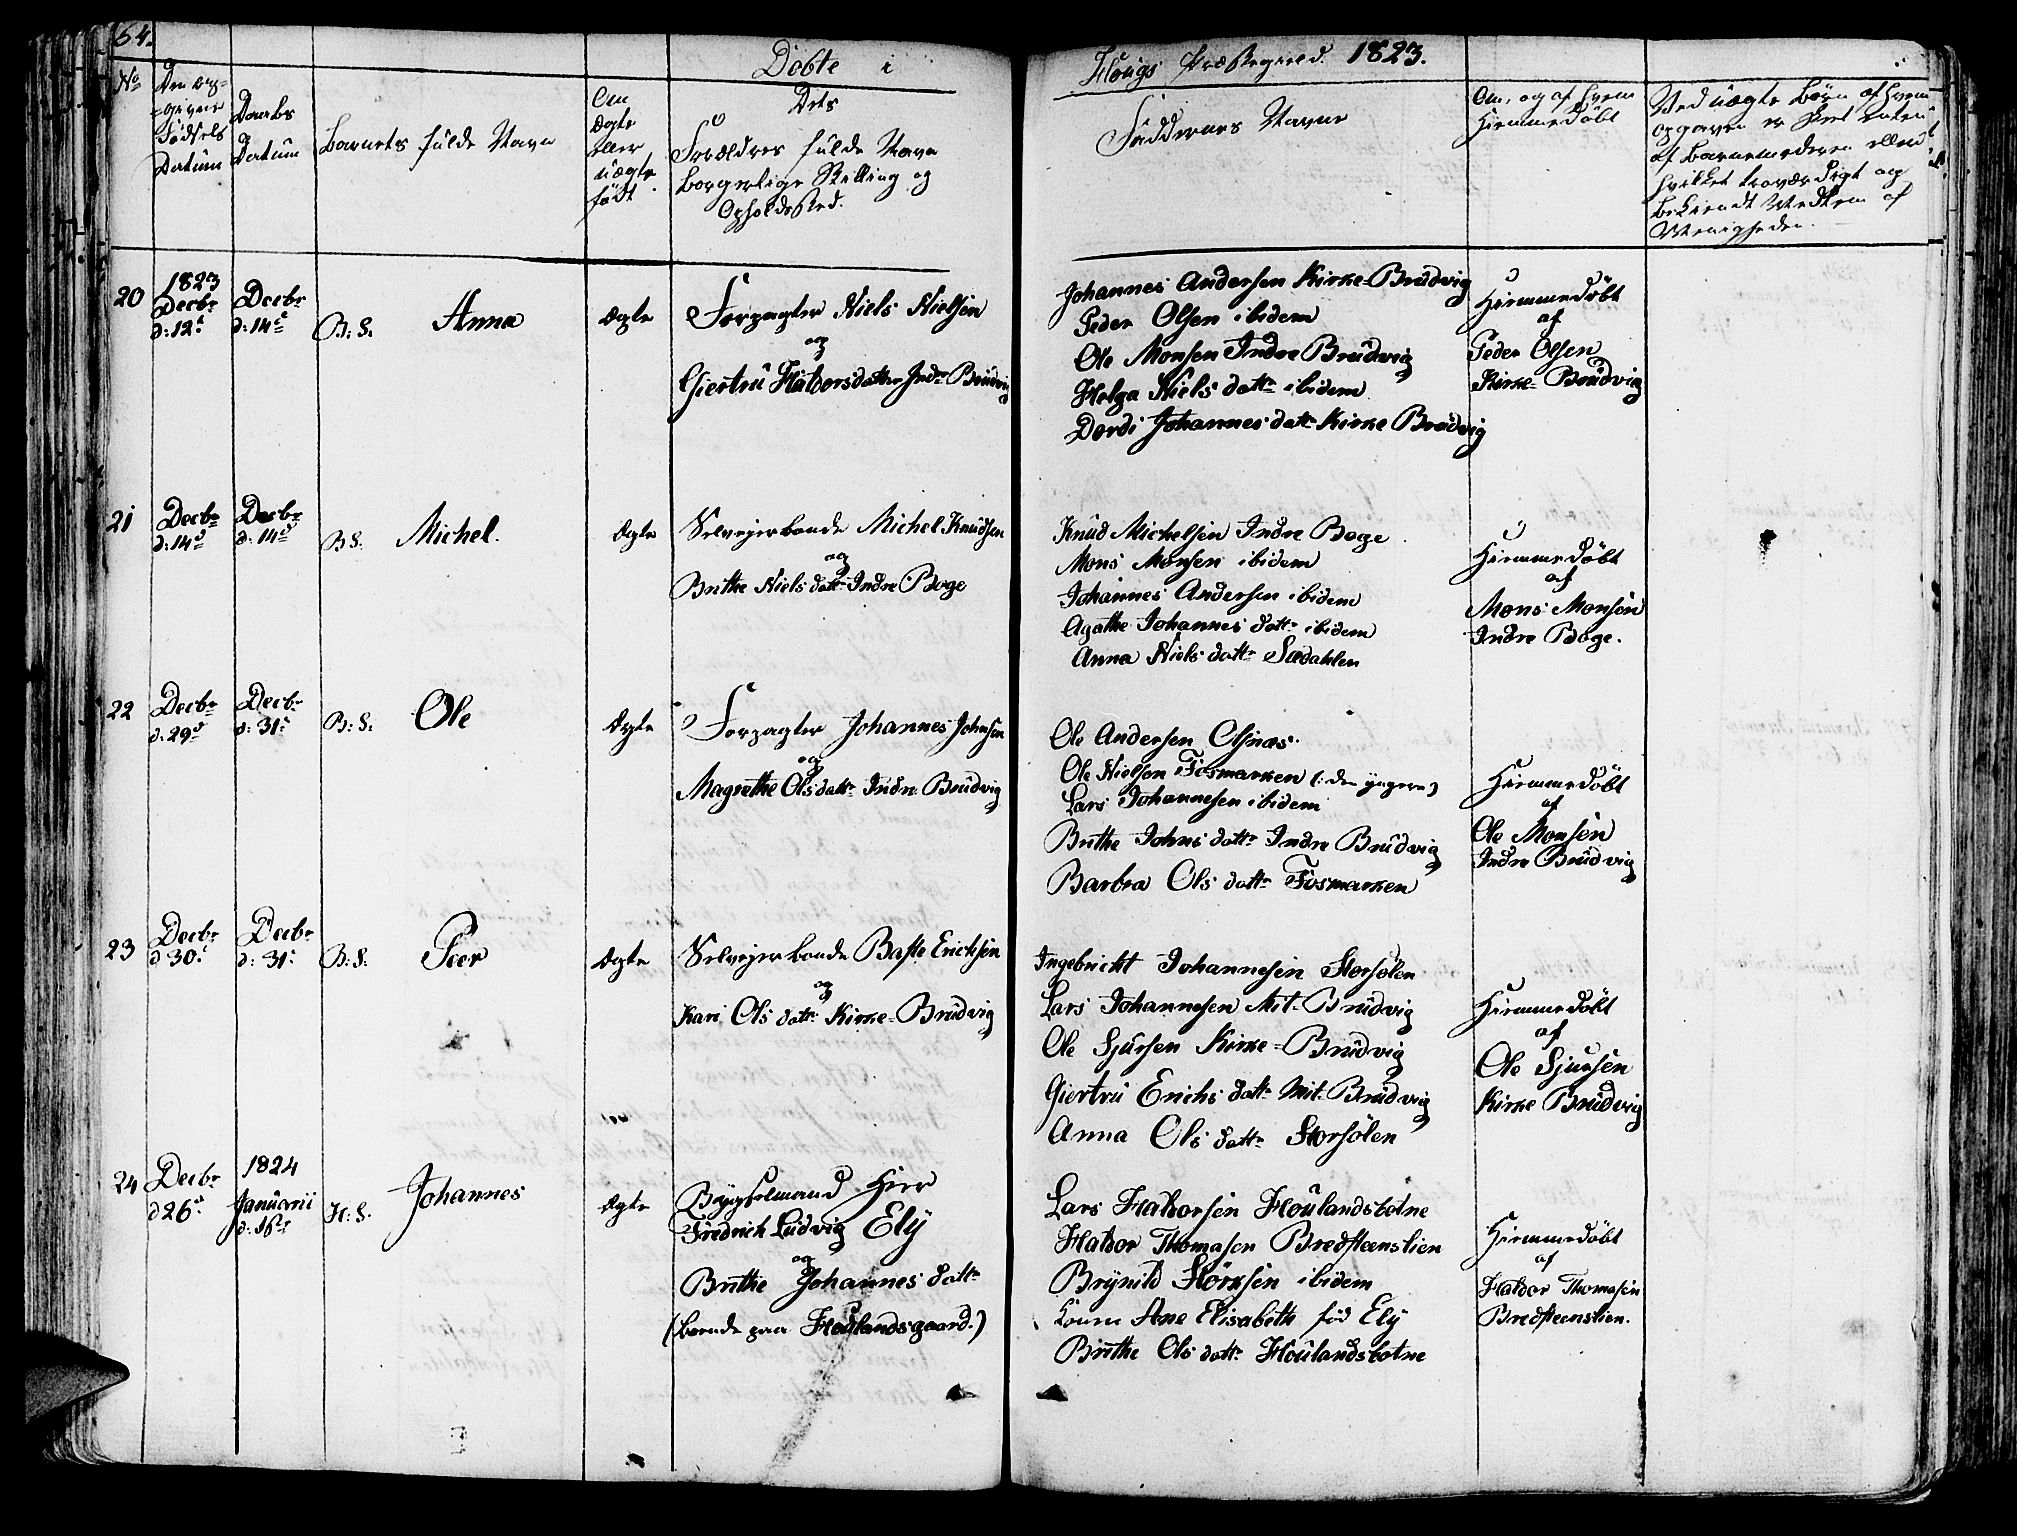 64.
Döbte i
Hougs Præstegield. 1823.
No
Den op-
-givne
Födsels
Datum
Daabs
Datum
Barnets fulde Navn
Om
ægte
eller
uægte
födt.
Dets
Forældres fulde Navn
borgerlige Stilling og
Opholdssted.
Faddernes Navne
Om, og af hvem
hiemmedöbt
Ved uægte Börn af hvem
opgaven er skeet enten
af Barnemoderen eller
hvilket troværdigt og
bekiendt Medlem af
Menigheden.
20
1823
Decbr
d: 12t
Decbr
d: 14d
B: S.
Anna
Ægte
Forpagter Niels Nielsen
og
Giertru Haldorsdatter Indr. Brudvig
Johannes Andersen Kirke-Brudvig
Peder Olsen ibidem
Ole Monsen Indre Brudvig
Helga Niels dattr ibidem
Dordi Johannes dattr Kirke Brudvig
Hiemmedöbt
af
Peder Olsen
Kirke-Brudvig
21
Decbr
d: 14d
Decbr
d: 14d
B S.
Michel.
Ægte
Selveierbonde Michel Knudsen
og
Brithe Niels dattr Indre Boge
Knud Michelsen Indre Boge
Mons Monsen ibidem
Johannes Andersen ibidem
Agathe Johannes dattr ibidem
Anna Niels dattr Sædahlen
Hiemmedöbt
af
Mons Monsen
Indre Boge.
22
Decbr
d: 29d
Decbr
d: 31t
B: S.
Ole
Ægte
Forpagter Johannes Johnsen
og
Magrethe Olsdattr Indre Brudvig
Ole Andersen Olsnæs.
Ole Nielsen Fosmarken (: den yngere)
Lars Johannesen ibidem
Brithe Johns dattr Indre Brudvig
Barbra Ols dattr Fosmarken
Hiemmedöbt
af
Ole Monsen
Indre Brudvig
23
Decbr
d 30t
Decbr
d: 31t
B: S.
Peer
Ægte
Selveierbonde Baste Ericksen
og
Kari Ols dattr Kirke-Brudvig
Ingebricht Johannesen Storsölen
Lars Johannesen Mit-Brudvig
Ole Sjursen Kirke-Brudvig
Giertru Erichs dattr Mit-Brudvig
Anna Ols dattr Storsölen
Hiemmedöbt
af
Ole Sjursen
Kirke Brudvig
24
Decbr
d 26t
1824
Januarii
d: 16t
H: S.
Johannes
Ægte
Bygselmand Herr
Fredrich Ludvig Ely
og
Brithe Johannes dattr
(boende paa Houlandsgaard.)
Lars Haldorsen Houlandsbotne
Haldor Thomasen Bredsteenslien
Brynild Störksen ibidem
Konen Ane Elisabeth fød Ely
Brithe Ols dattr Houlandsbotne
Hiemmedöbt
af
Haldor Thomasen
Bredsteenslien.